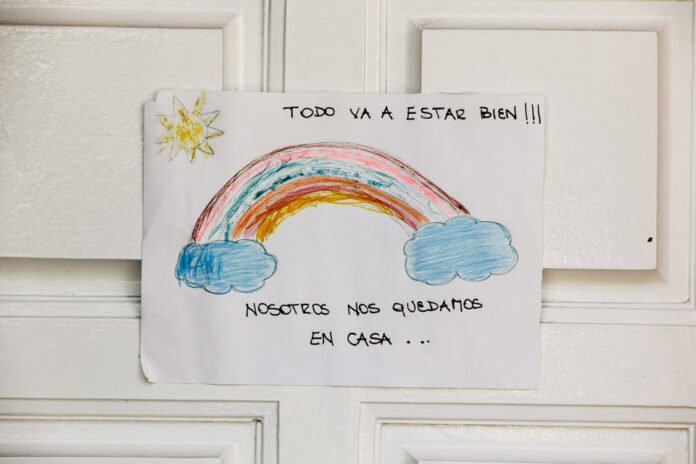 TODO VA A ESTAR BIEN!!!
NOSOTROS NOS QUEDAMOS
EN CASA...